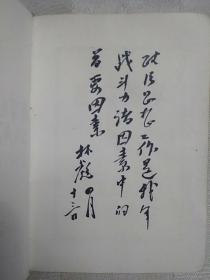 政治思想工作是我军
战斗力诸因素中的
首要因素
林彪 四月